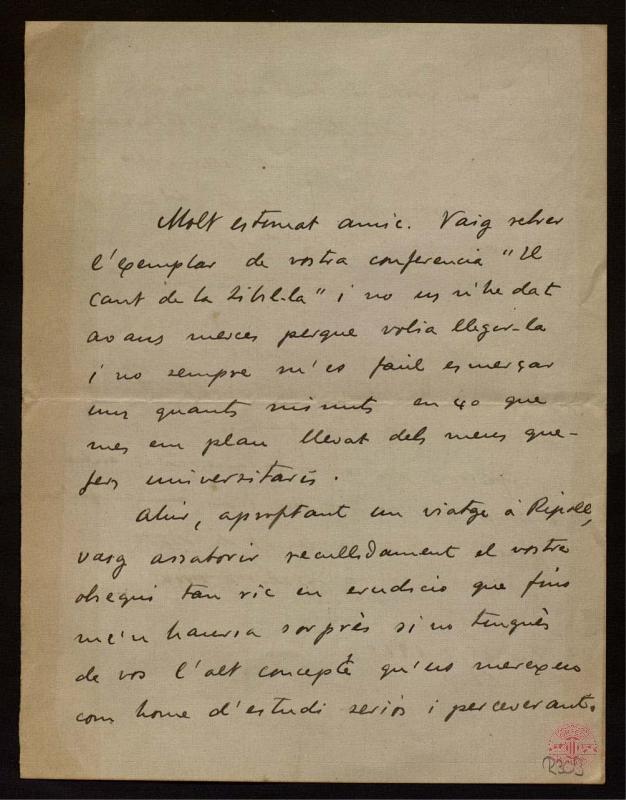 Molt estimat amic. Vaig rebrer
l'exemplar de vostra conferencia "El
Cant de la Sibil-la" i no us n'he dat
avans merces perque volia llegir-la
i no sempre m'es facil esmerçar
uns quants minuts en ço que
mes em plau llevat dels meus que-
fers universitaris.
Ahir, aprofitant un viatge à Ripoll,
vaig assaborir recullidament el vostre
obsequi tan ric en erudicio que fins
me'n hauria sorprès si no tinguès
de vos l'alt concepte qu'us mereixeu
com home d'estudi seriós i perceverant.
R303